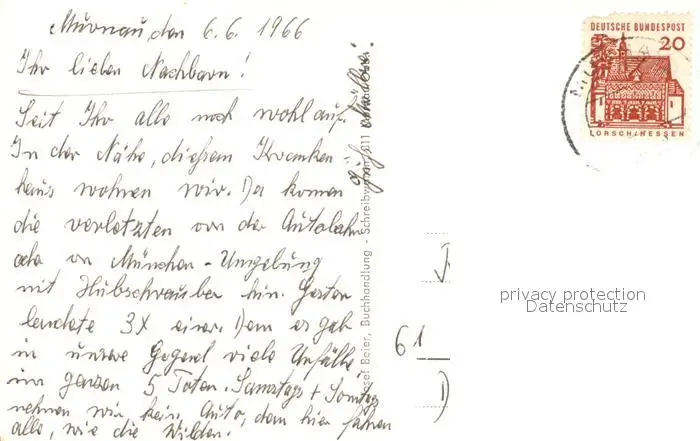 Murnau, den 6.6.1966
Ihr lieben Nachbarn!
Seit Ihr alle noch wohlauf.
In der Nähe, diesem Kranken
haus wohnen wir. Da kommen
die verletzten von der Autobahn
oder von München-Umgebung
mit Hubschrauber hin. Gestern
landete 3X einer. Denn es gab
in unsere Gegend viele Unfälle
im ganzen 5 Toten. Samstags + Sonntag
nehmen wir kein Auto, denn hier fahren
alle, wie die Wilden.
Josef Beier, Buchhandlung - Schreibwaren
DEUTSCHE BUNDESPOST
20
LORSCH/HESSEN
61
privacy protection
Datenschutz